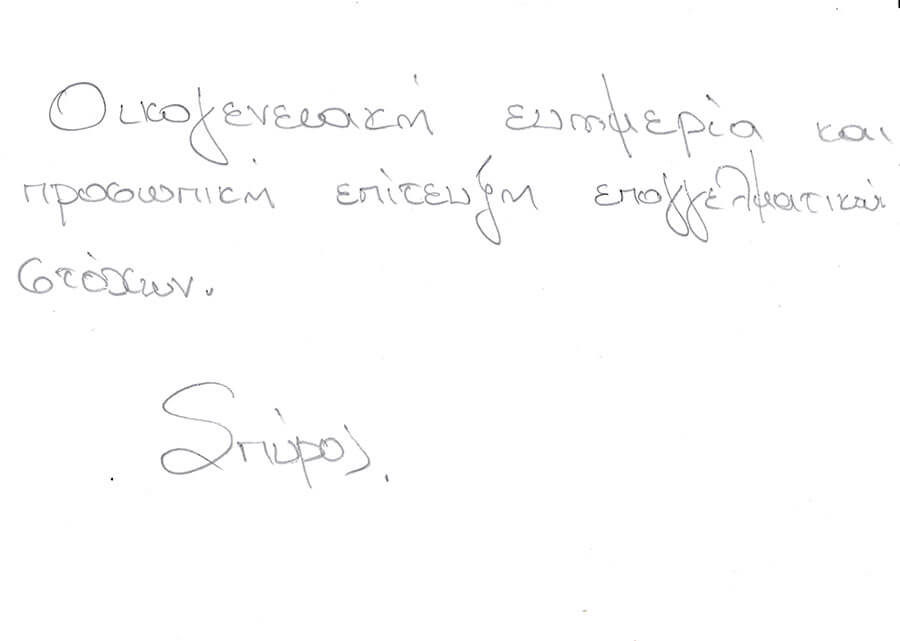 Οικογενειακή ευημερία και
προσωπική επίτευξη επαγγελματικών
στόχων.
Σπύρος.